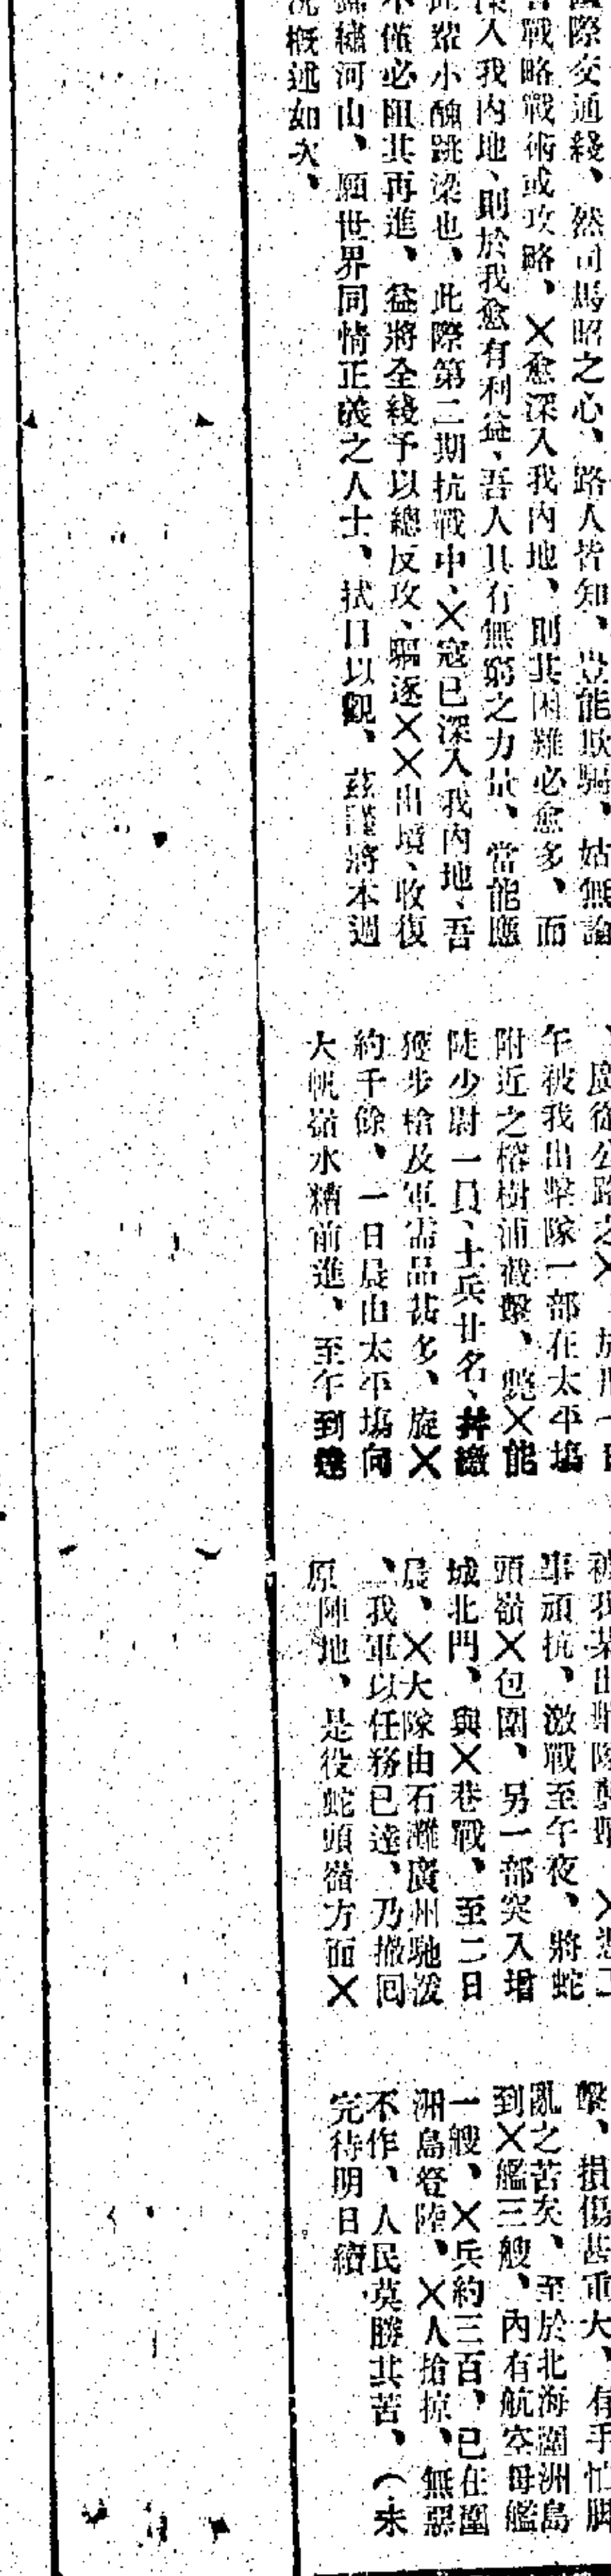 國際交通綫、然司馬昭之心、路人皆知、豈能欺騙、姑無論
戰略戰術或攻略、✕愈深入我內地、則其困難必愈多、而
深入我內地、則於我愈有利益、吾人具有無窮之力量、當能應
此跳小醜跳梁也、此際第二期抗戰中、✕寇已深入我內地、吾
不僅必阻其再進、益將全綫予以總反攻、驅逐✕✕出境、收復
錦繡河山、願世界同情正義之人士、拭目以觀、茲謹將本週
況概述如次、
、廣從公路之✕
午被我出擊隊一部在太平塲
附近之榕樹浦截擊、斃✕能
陡少尉一員、士兵廿名、幷繳
獲步槍及軍需品甚多、旋✕
約千餘、一日晨由太平塲向
大帆嶺水糟前進、至午到達
被我某出擊隊
車頑抗、激戰至午夜、將蛇
頭嶺✕包圍、另一部突入增
城北門、與✕巷戰、至二日
晨、✕大隊由石灘廣州馳援
、我軍以任務已達、乃撤回
原陣地、是役蛇頭嶺方面✕
擊、損傷甚重大、有手忙脚
亂之苦矣、至於北海潿洲島
到✕艦三艘、內有航空母艦
一艘、✕兵約三百、已在潿
洲島登陸、✕人搶掠、無惡
不作、人民莫勝其苦、（未
完待明日續